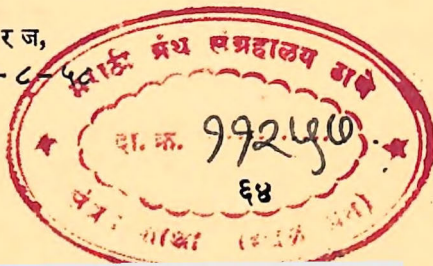 र ज,
-८-५८
मराठी ग्रंथ संग्रहालय ठाणे
दा. क्र. ११२५७
६४